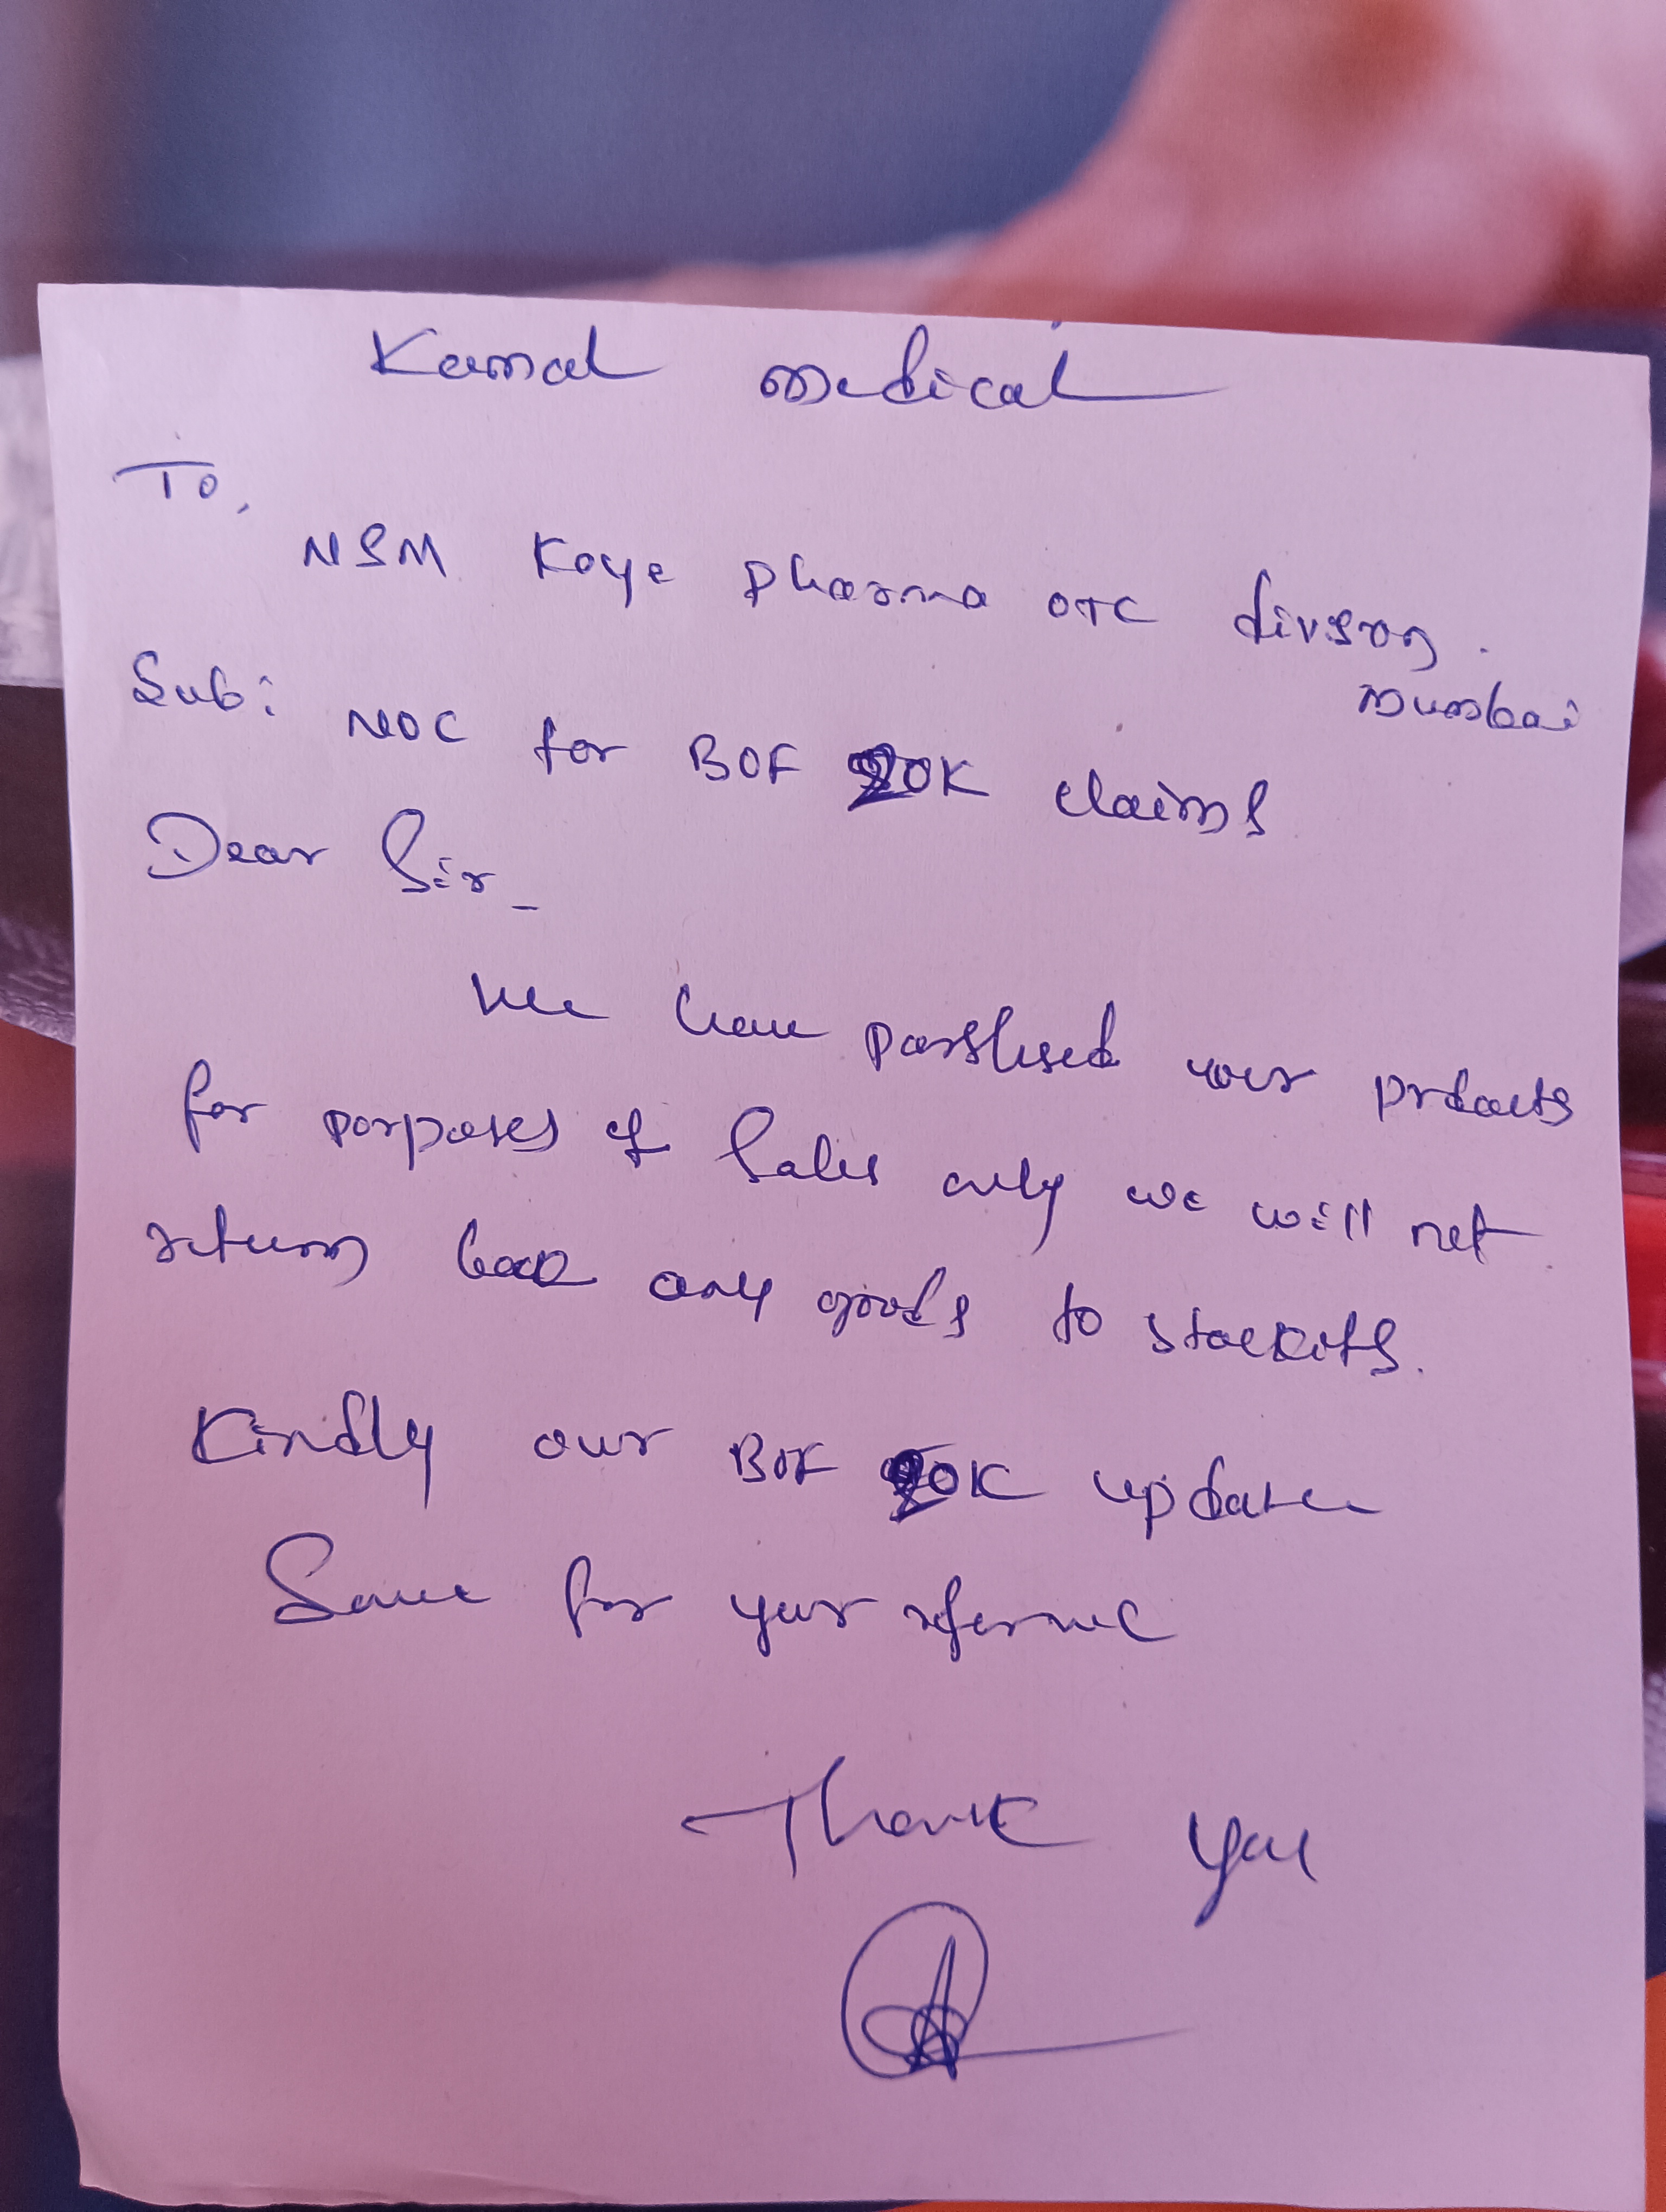 Kamal medical
To,
NSM Koye pharma OTC divson.
Mumbai
Sub: NOC for BOF 20K claims
Dear Sir_
We have parshsed your prdoucts
for porposes of Sales only we will not
return back any goods to stockits.
Kindly our BOF 20K update
Same for your refernec
Thank you